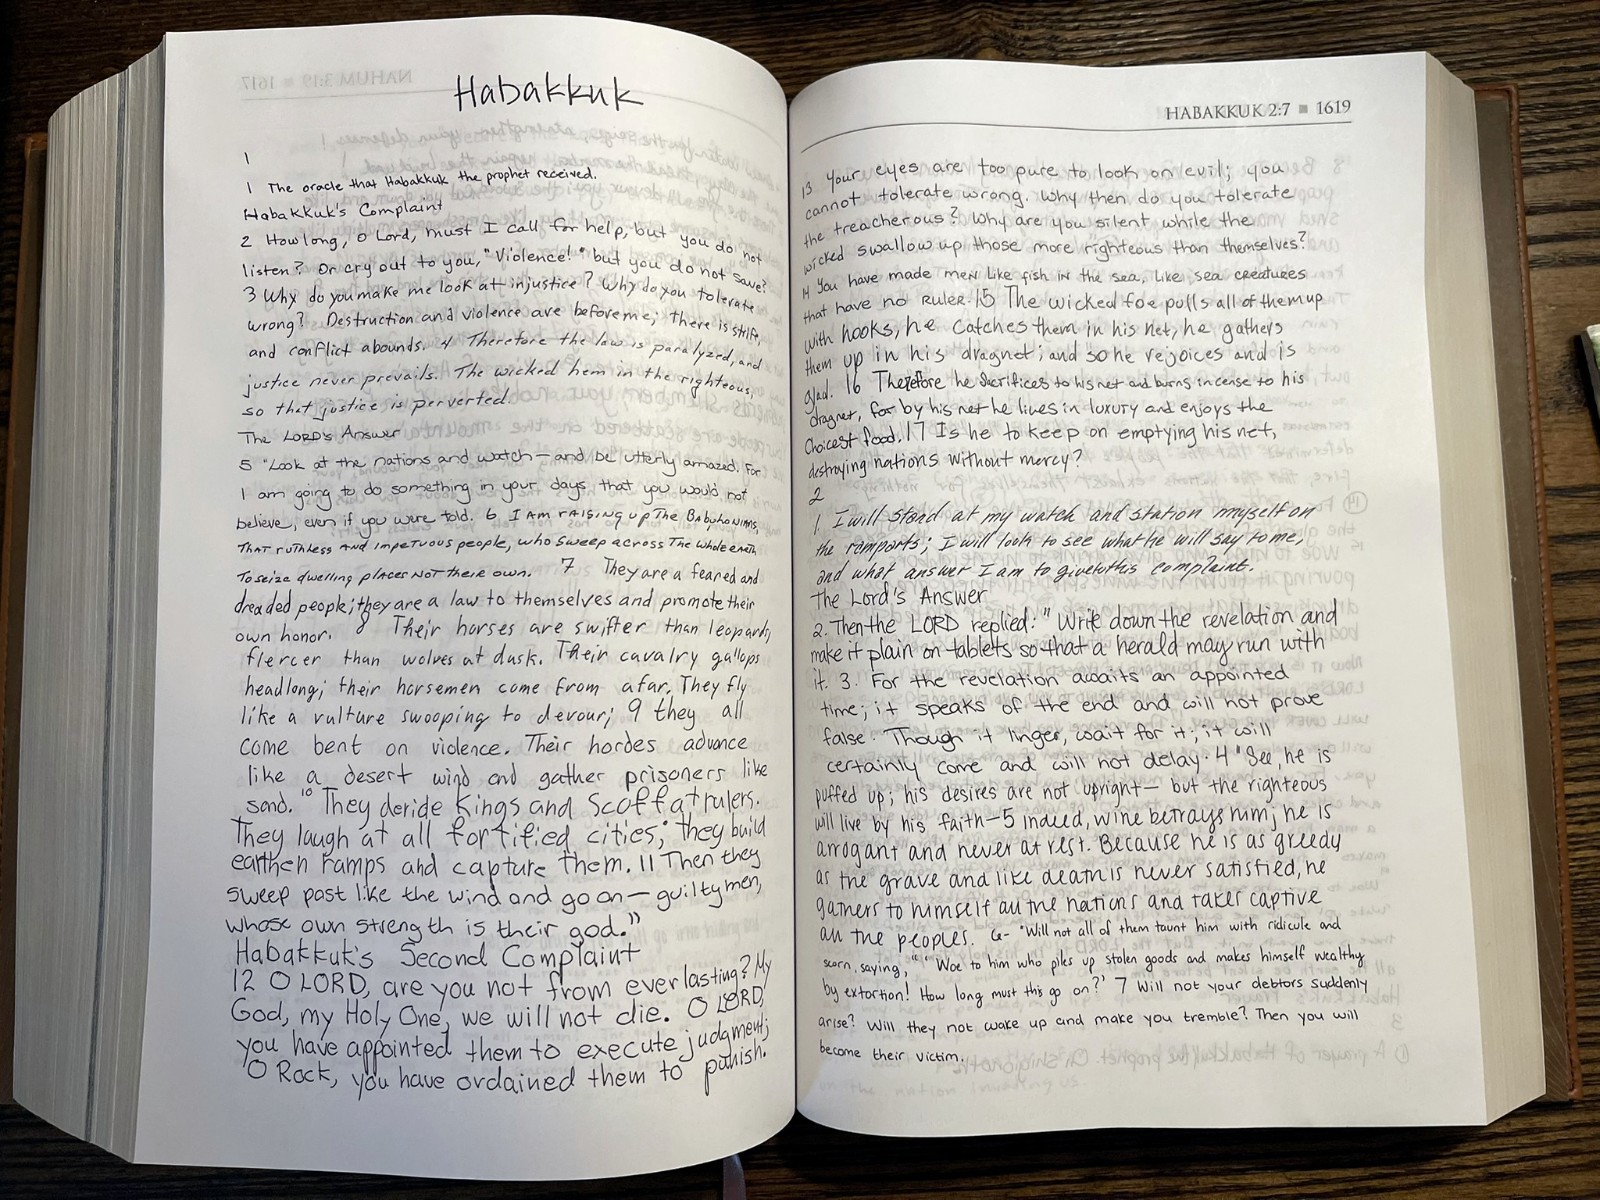 Habakkuk
1
1 The oracle that Habakkuk the prophet received.
Habakkuk's Complaint
2 How long, O Lord, must I call for help, but you do not
listen? Or cry out to you, "Violence!" but you do not save?
3 Why do you make me look at injustice? Why do you tolerate
wrong? Destruction and violence are before me; there is strife,
and conflict abounds. 4 Therefore the law is paralyzed, and
justice never prevails. The wicked hem in the righteous,
so that justice is perverted.
The LORD's Answer
5 "Look at the nations and watch — and be utterly amazed. For
I am going to do something in your days that you would not
believe, even if you were told. 6 I am raising up The Babylonians,
THAT ruthless AND impetuous people, who sweep across The whole earth
To seize dwelling places NOT their own. 7 They are a feared and
dreaded people; they are a law to themselves and promote their
own honor. 8 Their horses are swifter than leopards,
fiercer than wolves at dusk. Their cavalry gallops
headlong; their horsemen come from afar. They fly
like a vulture swooping to devour; 9 they all
come bent on violence. Their hordes advance
like a desert wind and gather prisoners like
sand. 10 They deride kings and scoff at rulers.
They laugh at all fortified cities; they build
earthen ramps and capture them. 11 Then they
sweep past like the wind and go on — guilty men,
whose own strength is their god."
Habakkuk's Second Complaint
12 O LORD, are you not from everlasting? My
God, my Holy One, we will not die. O LORD,
you have appointed them to execute judgment;
O Rock, you have ordained them to punish.
HABAKKUK 2:7 ■ 1619
13 Your eyes are too pure to look on evil; you
cannot tolerate wrong. Why then do you tolerate
the treacherous? Why are you silent while the
wicked swallow up those more righteous than themselves?
14 You have made men like fish in the sea, like sea creatures
that have no ruler. 15 The wicked foe pulls all of them up
with hooks, he catches them in his net, he gathers
them up in his dragnet; and so he rejoices and is
glad. 16 Therefore he sacrifices to his net and burns incense to his
dragnet, for by his net he lives in luxury and enjoys the
choicest food. 17 Is he to keep on emptying his net,
destroying nations without mercy?
2
1 I will stand at my watch and station myself on
the ramparts; I will look to see what he will say to me,
and what answer I am to give to this complaint.
The Lord's Answer
2. Then the LORD replied: "Write down the revelation and
make it plain on tablets so that a herald may run with
it. 3. For the revelation awaits an appointed
time; it speaks of the end and will not prove
false. Though it linger, wait for it; it will
certainly come and will not delay. 4 "See, he is
puffed up; his desires are not upright — but the righteous
will live by his faith — 5 indeed, wine betrays him; he is
arrogant and never at rest. Because he is as greedy
as the grave and like death is never satisfied, he
gathers to himself all the nations and takes captive
all the peoples. 6 - "Will not all of them taunt him with ridicule and
scorn, saying, "'Woe to him who piles up stolen goods and makes himself wealthy
by extortion! How long must this go on?' 7 Will not your debtors suddenly
arise? Will they not wake up and make you tremble? Then you will
become their victim.